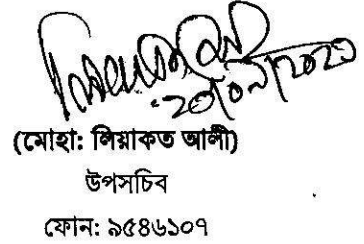 ২০/০৯/২০২০
(মোহা: লিয়াকত আলী)
উপসচিব
ফোন: ৯৫৪৬১০৭